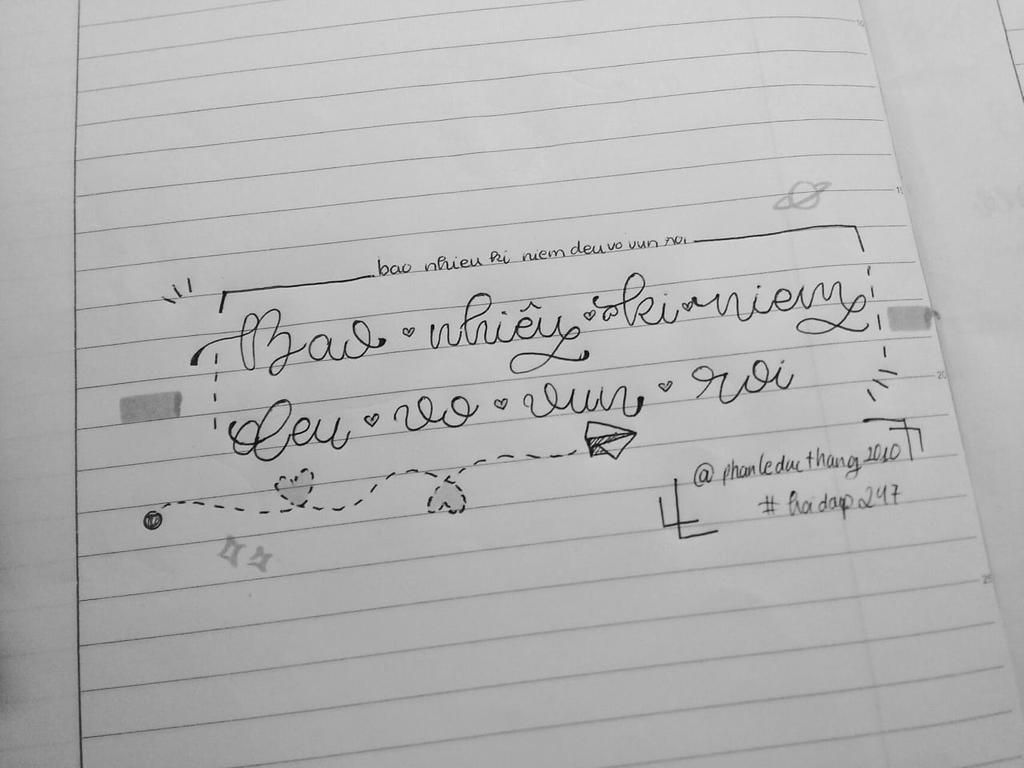 bao nhieu ki niem deu vo vun roi
Bao nhiêu ki niem
deu vo vun roi
@phanleducthang2010
#hoidap247